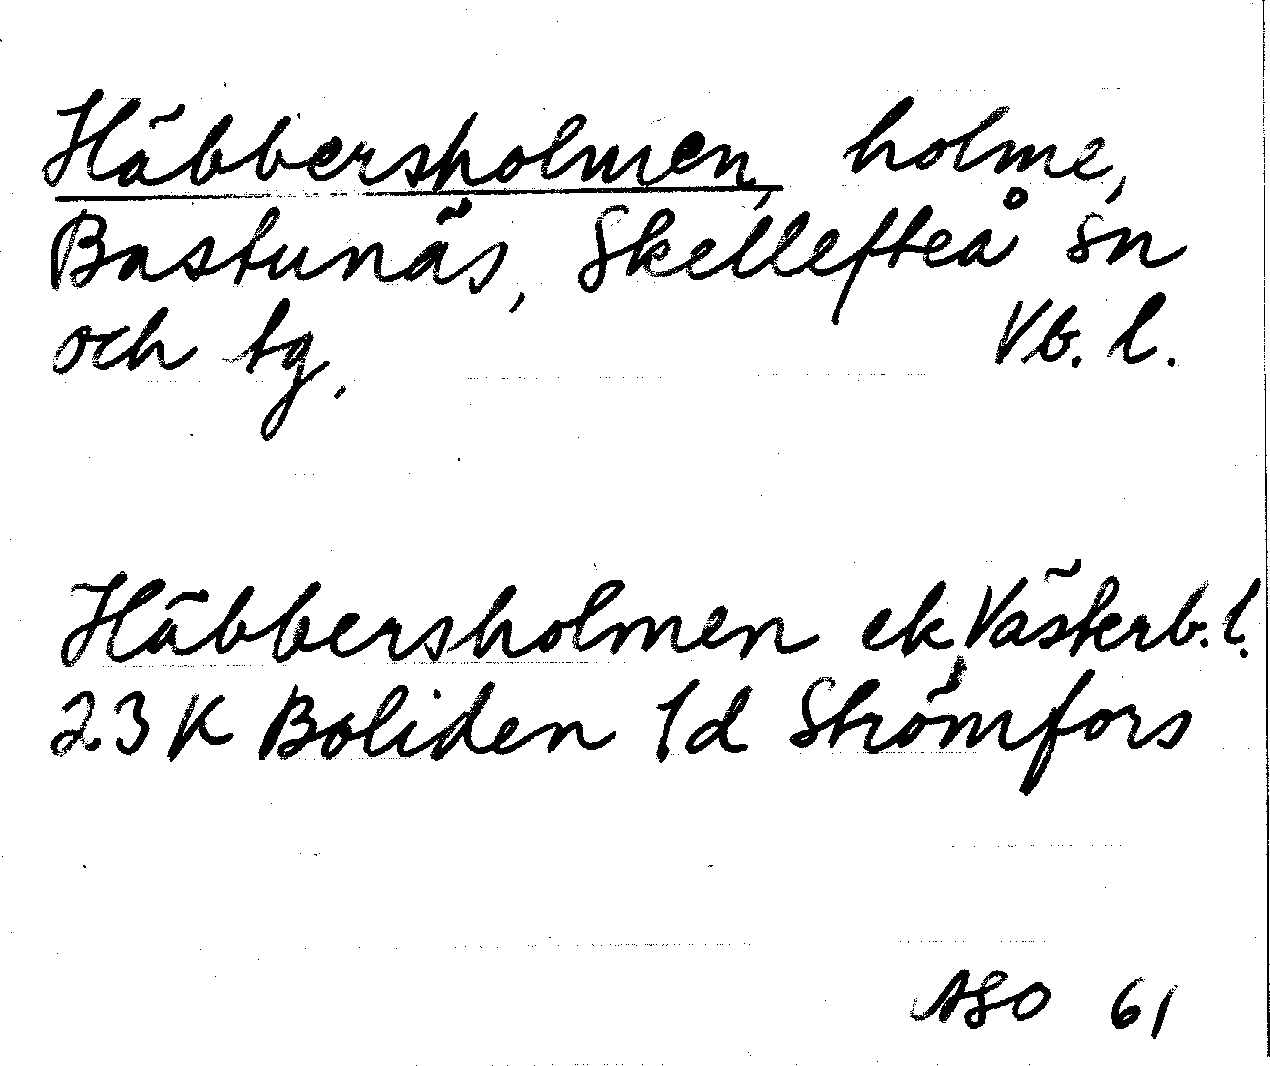 Häbbersholmen, holme,
Bastunäs, Skellefteå sn
och tg. Vb. l.
Häbbersholmen ek, Västerb. l.
23 K Boliden 1d Strömfors
ASO 61